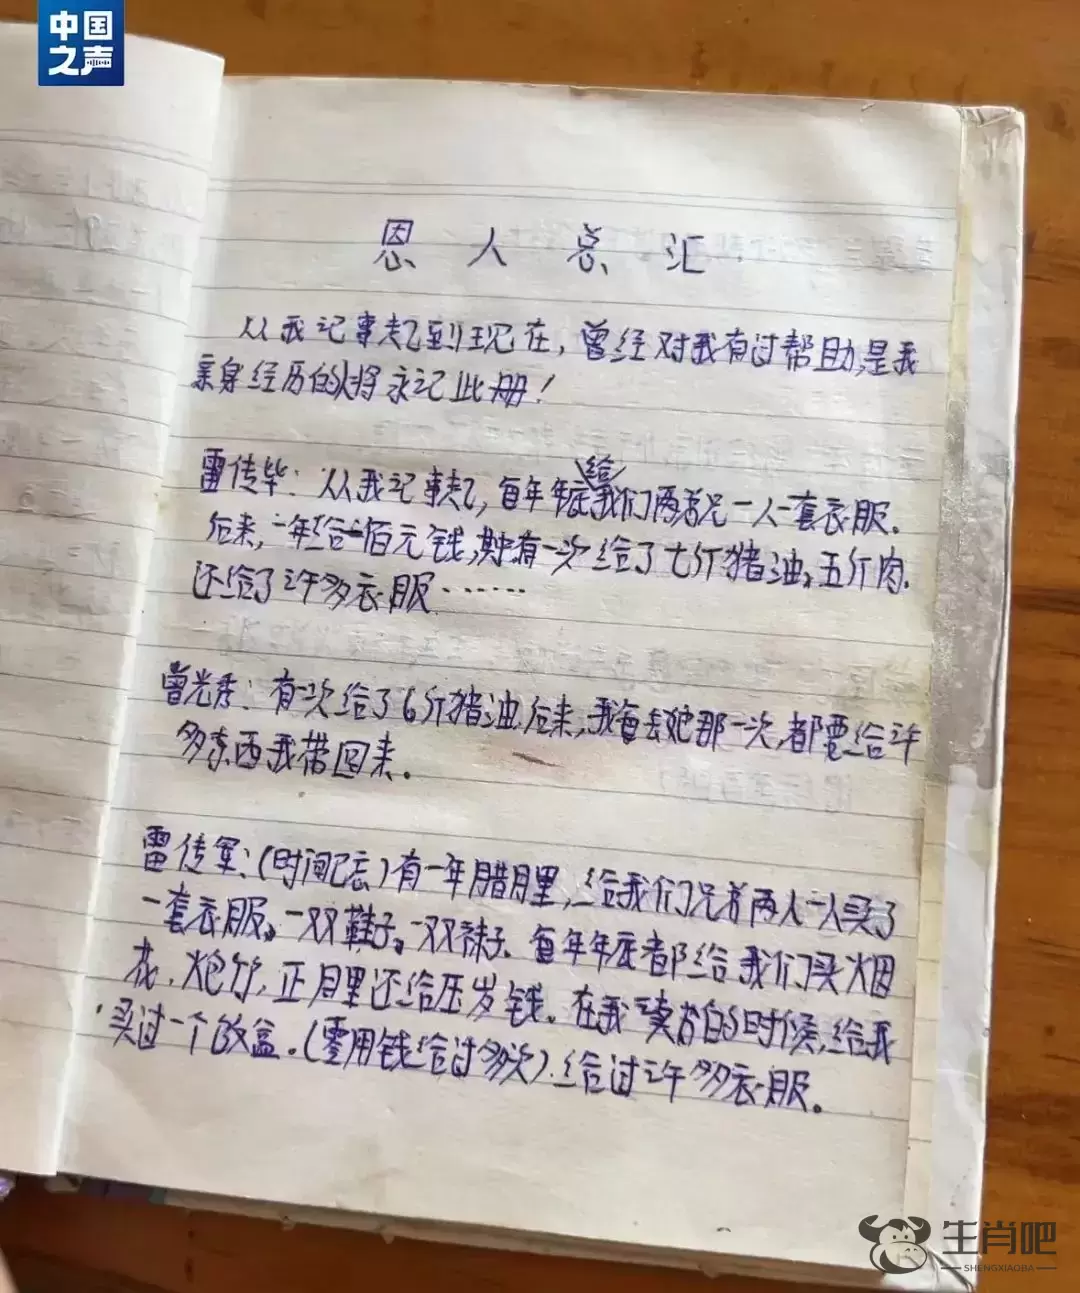 中国之声
恩人总汇
从我记事起到现在,曾经对我有过帮助,是我
亲身经历的将永记此册!
雷传毕:从我记事起,每年年底给我们两弟兄一人一套衣服.
后来,一年给一佰元钱,其中有一次给了七斤猪油,五斤肉.
还给了许多衣服.……
曾光秀:有一次给了6斤猪油.后来,我每去她那一次,都要给许
多东西我带回来。
雷传军:(时间已忘)有一年腊月里,给我们兄弟两人一人买了
一套衣服,一双鞋子,一双袜子.每年年底都给我们买烟
花,炮竹,正月里还给压岁钱。在我读书的时候,给我
买过一个饭盒。(零用钱给过多次).给过许多衣服。
生肖吧
SHENGXIAOBA